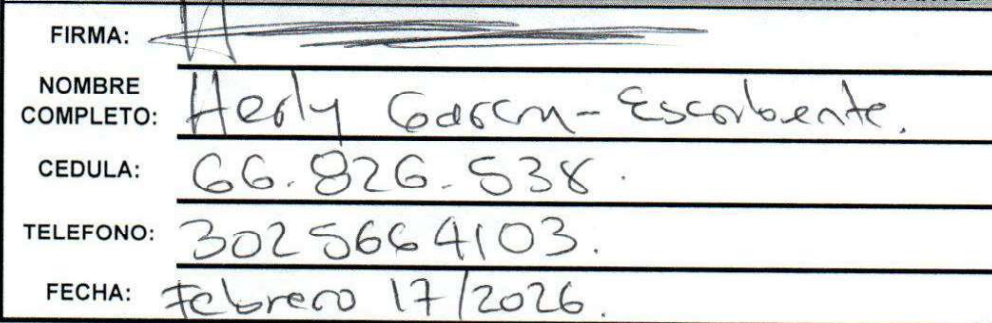 FIRMA:
NOMBRE COMPLETO: Herly
CEDULA: 66.826.538.
TELEFONO: 3025664103.
FECHA: Febrero 17/2026.